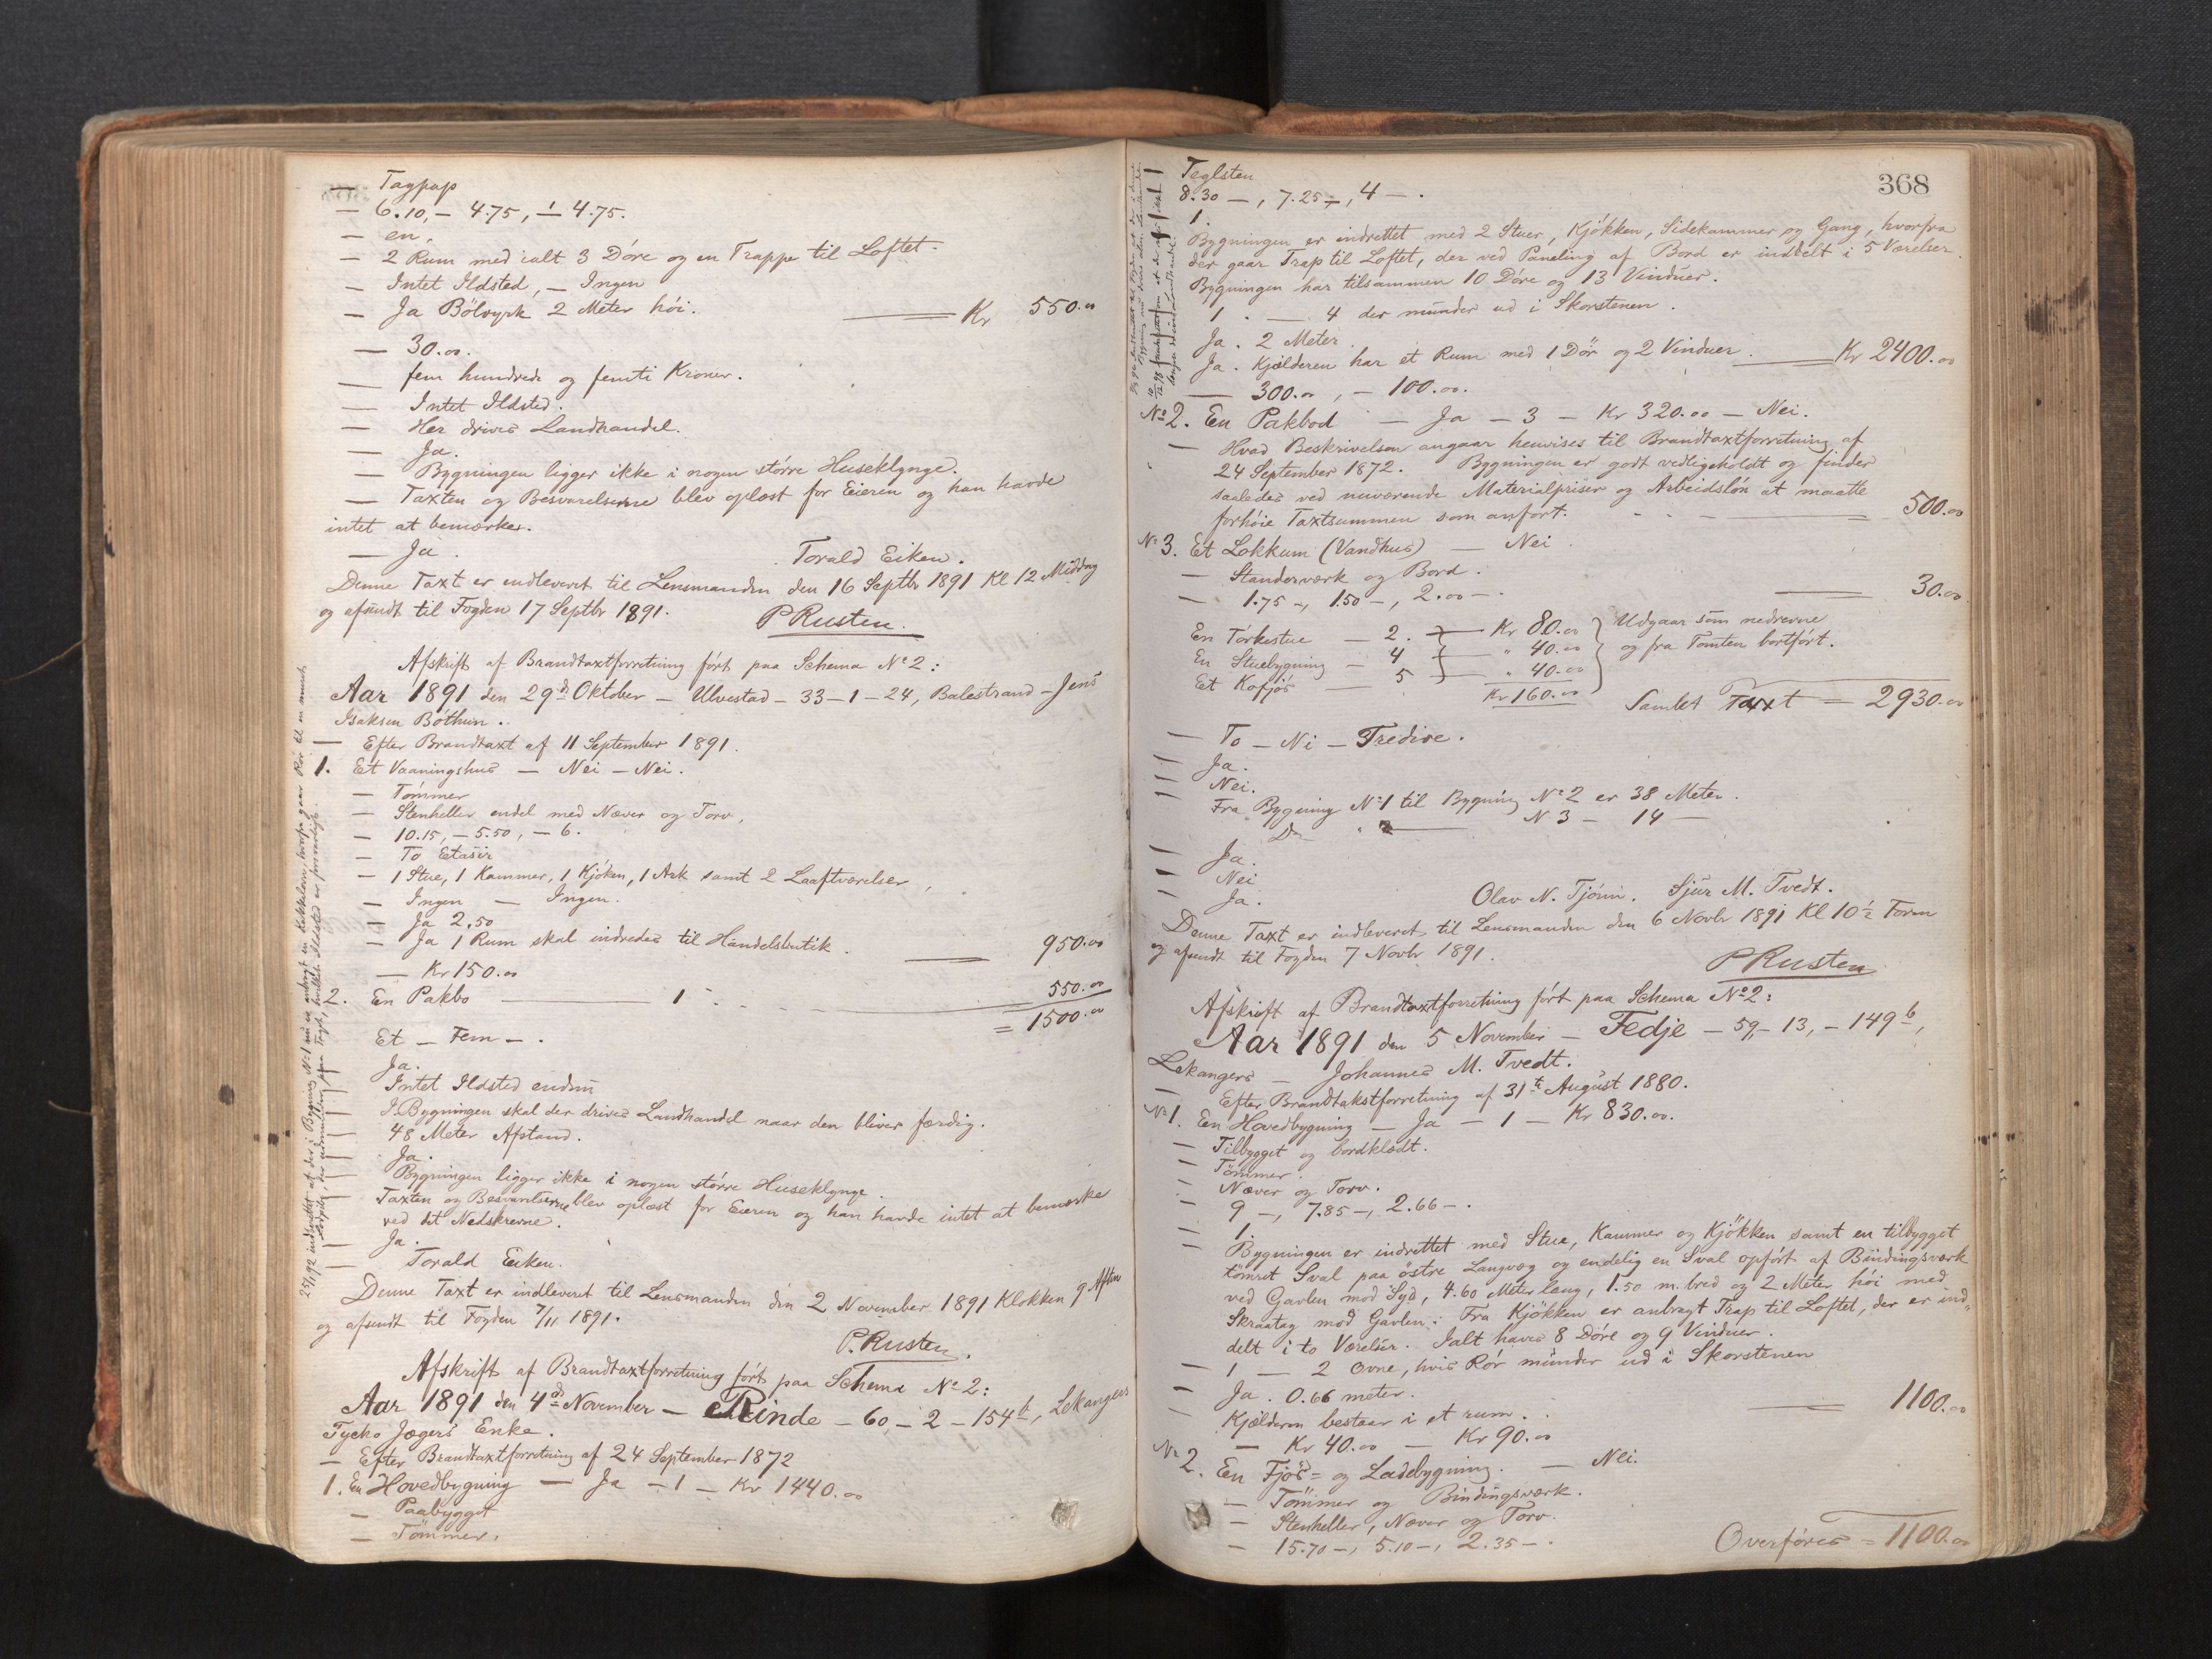 — Tagpap
— 6.10, — 4.75, — 4.75.
— en,
— 2 Rum med ialt 3 Döre og en Trappe til Loftet.
— Intet Ildsted, — Ingen
— Ja Bölvyrk 2 Meter höi. Kr 550.00
— 30.00.
— fem hundrede og femti Kroner.
— Intet Ildsted.
— Her drives Landhandel.
— Ja.
— Bygningen ligger ikke i nogen större Huseklynge.
— Taxten og Besvarelserne blev oplæst for Eieren og han havde
intet at bemærke.
— Ja.
Torald Eiken.
Denne Taxt er indleveret til Lensmanden den 16 Septbr 1891 Kl 12 Middag
og afsendt til Fogden 17 Septbr 1891.
P Rusten.
Afskrift af Brandtaxtforretning fört paa Schema No 2:
Aar 1891 den 29d Oktober — Ulvestad — 33 — 1 — 24, Balestrand — Jens
Isaksen Böthun.
— Efter Brandtaxt af 11 September 1891.
1. Et Vaaningshus — Nei — Nei.
— Tömmer
— Stenheller endel med Næver og Torv,
— 10.15, — 5.50, — 6.
— To Etasier
— 1 Stue, 1 Kammer, 1 Kjöken, 1 Ark samt 2 Laaftværelser,
— Ingen — Ingen.
— Ja 2,50
— Ja 1 Rum skal indredes til Handelsbutik. 950.00
— Kr 150.00
2. En Pakbo — 1 550.00
= 1500.00
Et — Fem —.
Ja.
Intet Ildsted endnu
I Bygningen skal der drives Landhandel naar den bliver færdig.
48 Meter Afstand.
Ja.
Bygningen ligger ikke i nogen större Huseklynge.
Taxten og Besvarelserne blev oplæst for Eieren og han havde intet at bemærke
ved det Nedskrevne.
Ja.
Torald Eiken.
Denne Taxt er indleveret til Lensmanden den 2 November 1891 Klokken 9 Aften
og afsendt til Fogden 7/11 1891.
P. Rusten.
Afskrift af Brandtaxtforretning fört paa Schema No 2:
Aar 1891 den 4de November — Rinde — 60, — 2 — 154b, Lekangers
Tycho Jægers Enke.
— Efter Brandtaxtforretning af 24 September 1872
1. En Hovedbygning — Ja — 1 — Kr 1440.00
— Paabygget
— Tömmer.
368
Teglsten
8.30 —, 7.25 —, 4 —.
1.
Bygningen er indrettet med 2 Stuer, Kjökken, Sidekammer og Gang, hvorfra
der gaar Trap til Loftet, der ved Paneling af Bord er inddelt i 5 Værelser.
Bygningen har tilsammen 10 Döre og 13 Vinduer.
1. — 4 der munder ud i Skorstenen.
Ja. 2 Meter.
Ja. Kjælderen har et Rum med 1 Dör og 2 Vinduer. Kr 2400.00
— 300.00, — 100.00.
No 2. En Pakbod — Ja — 3 — Kr 320.00 — Nei.
— Hvad Beskrivelsen angaar henvises til Brandtaxtforretning af
24 September 1872. Bygningen er godt vedligeholdt og findes
saaledes ved nuværende Materialpriser og Arbeidslön at maatte
forhöie Taxtsummen som anfört. 500.00
No 3. Et Lokkum (Vandhus) — Nei
— Standerværk og Bord.
— 1.75 —, 1.50 —, 2.00 —. 30.00
En Törkestue — 2. — Kr 80.00 Udgaar som nedrevne
En Stuebygning — 4 — " 40.00 og fra Tomten bortfört.
Et Kofjös — 5 — " 40.00
Kr 160.00 Samlet Taxt = 2930.00
— To — Ni — Tredive.
— Ja.
— Nei.
— Fra Bygning No 1 til Bygning No 2 er 38 Meter.
Do " — N 3 — 14 —
— Ja.
— Nei
— Ja.
Olav N. Tjönn. Sjur M. Tvedt.
Denne Taxt er indleveret til Lensmanden den 6 Novbr 1891 Kl 10½ Form
og afsendt til Fogden 7 Novbr 1891.
P Rusten
Afskrift af Brandtaxtforretning fört paa Schema No 2:
Aar 1891 den 5 November — Fedje — 59, — 13, — 149b,
Lekangers — Johannes M. Tvedt.
— Efter Brandtakstforretning af 31te August 1880.
No 1. En Hovedbygning — Ja — 1 — Kr 830.00.
— Tilbygget og bordklædt.
— Tömmer.
— Næver og Torv.
— 9 —, 7.85 —, 2.66 —.
— 1.
— Bygningen er indrettet med Stue, Kammer og Kjökken samt en tilbygget
tömret Sval paa östre Langvæg og endelig en Sval opfört af Bindingsværk
ved Gavlen mod Syd, 4.60 Meter lang, 1.50 m. bred og 2 Meter höi med
Skraatag mod Gavlen. Fra Kjökken er anbragt Trap til Loftet, der er ind-
delt i to Værelser. Ialt haves 8 Döre og 9 Vinduer.
— 1 — 2 Ovne, hvis Rör munder ud i Skorstenen
— Ja. 0.66 meter.
Kjælderen bestaar i et rum. 1100.00
— Kr 40.00 — Kr 90.00
No 2. En Fjös- og Ladebygning. — Nei.
— Tömmer og Bindingsværk.
— Stenheller, Næver og Torv.
— 15.70 —, 5.10 —, 2.35 —.
Overföres = 1100.00